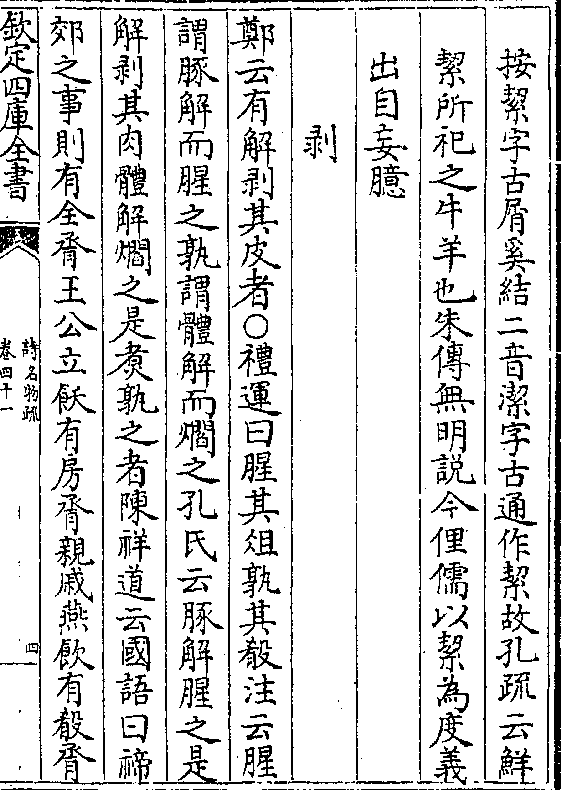 按絜字古屑奚結二音潔字古通作絜故孔疏云鮮
絜所祀之牛羊也朱傳無明説今俚儒以絜為度義
出自妄臆
剥
鄭云有解剥其皮者○禮運曰腥其俎孰其殽注云腥
謂豚解而腥之孰謂體解而爓之孔氏云豚解腥之是
解剥其肉體解爓之是煑孰之者陳祥道云國語曰禘
郊之事則有全脀王公立飫有房脀親戚燕飲有殽脀
欽定四庫全書
詩名物疏
卷四十一
四